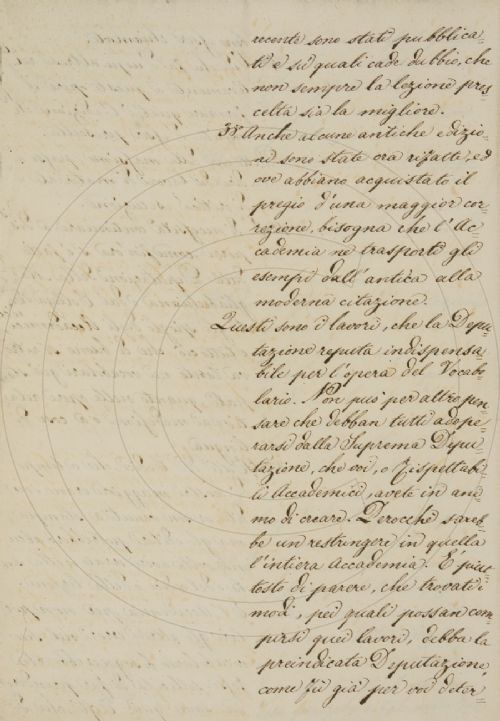 recente sono stati pubblica=
ti e su quali cade dubbio, che
non sempre la lezione pres=
celta sia la migliore.
5.° Anche alcune antiche edizio=
ni sono state ora rifatte; ed
ove abbiano acquistato il
pregio d'una maggior cor=
rezione, bisogna che l'Ac=
cademia ne trasporti gli
esempi dall'antica alla
moderna citazione.
Questi sono i lavori, che la Depu=
tazione reputa indispensa=
bile per l'opera del Vocabo=
lario. Non può per altro pen=
sare che debban tutti adope=
rarsi dalla Suprema Depu=
tazione, che voi, o Rispettabi=
li Accademici, avete in ani=
mo di creare. Perocchè sareb=
be un restringere in quella
l'intiera Accademia. È piut=
tosto di parere, che trovati i
modi, pei quali possan com=
pirsi quei lavori, debba la
preindicata Deputazione,
come fu già per voi deter=